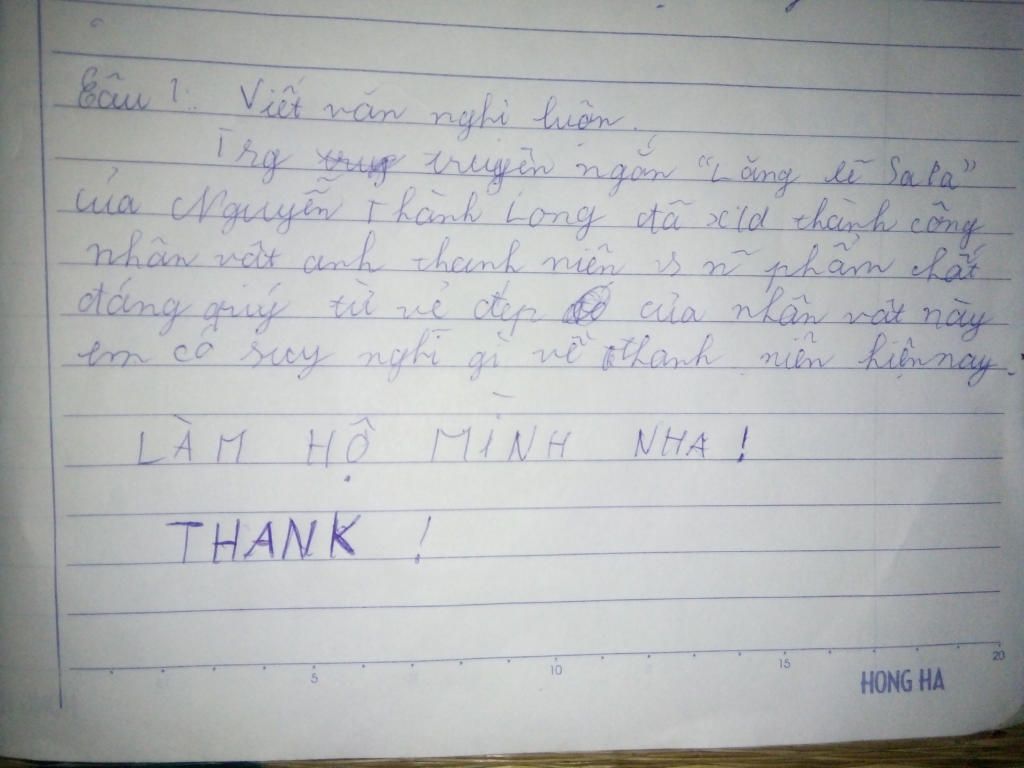 Câu 1: Viết văn nghị luận.
Trg truyện ngắn "Lặng lẽ Sa Pa"
của Nguyễn Thành Long đã x/d thành công
nhân vật anh thanh niên vs n~ phẩm chất
đáng quý từ vẻ đẹp của nhân vật này
em có suy nghĩ gì về thanh niên hiện nay.
LÀM HỘ MÌNH NHA !
THANK !
5 10 15 20
HONG HA